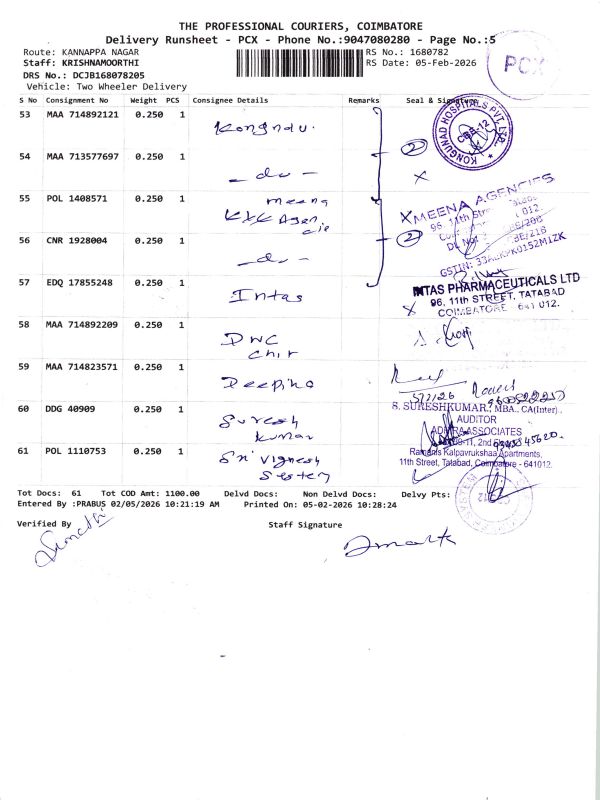 THE PROFESSIONAL COURIERS, COIMBATORE
Delivery Runsheet - PCX - Phone No.:9047080280 - Page No.:5
Route: KANNAPPA NAGAR
RS No.: 1680782
Staff: KRISHNAMOORTHI
RS Date: 05-Feb-2026
DRS No.: DCJB168078205
Vehicle: Two Wheeler Delivery
PCX
S No Consignment No Weight PCS Consignee Details Remarks Seal & Signature
53 MAA 714892121 0.250 1 Kongndu.
KONGUNAD HOSPITALS PVT. LTD.
CBE-12
54 MAA 713577697 0.250 1 - do - 2
55 POL 1408571 0.250 1 meena
Agen
cie
MEENA AGENCIES
96, 11th
012.
56 CNR 1928004 0.250 1 - do - 2
57 EDQ 17855248 0.250 1 Intas
INTAS PHARMACEUTICALS LTD
96, 11th STREET, TATABAD
COIMBATORE - 641 012.
58 MAA 714892209 0.250 1 DWC
chit
59 MAA 714823571 0.250 1 Deepika
5/2/26
60 DDG 40909 0.250 1 Suresh
kumar
S. SURESHKUMAR, MBA., CA(Inter).
AUDITOR
ASSOCIATES
2nd
Ramanis Kalpavrukshaa Apartments,
11th Street, Tatabad, Coimbatore - 641012.
61 POL 1110753 0.250 1 Sri Vignesh
System
Tot Docs: 61 Tot COD Amt: 1100.00 Delvd Docs: Non Delvd Docs: Delvy Pts:
Entered By :PRABUS 02/05/2026 10:21:19 AM Printed On: 05-02-2026 10:28:24
Verified By Staff Signature